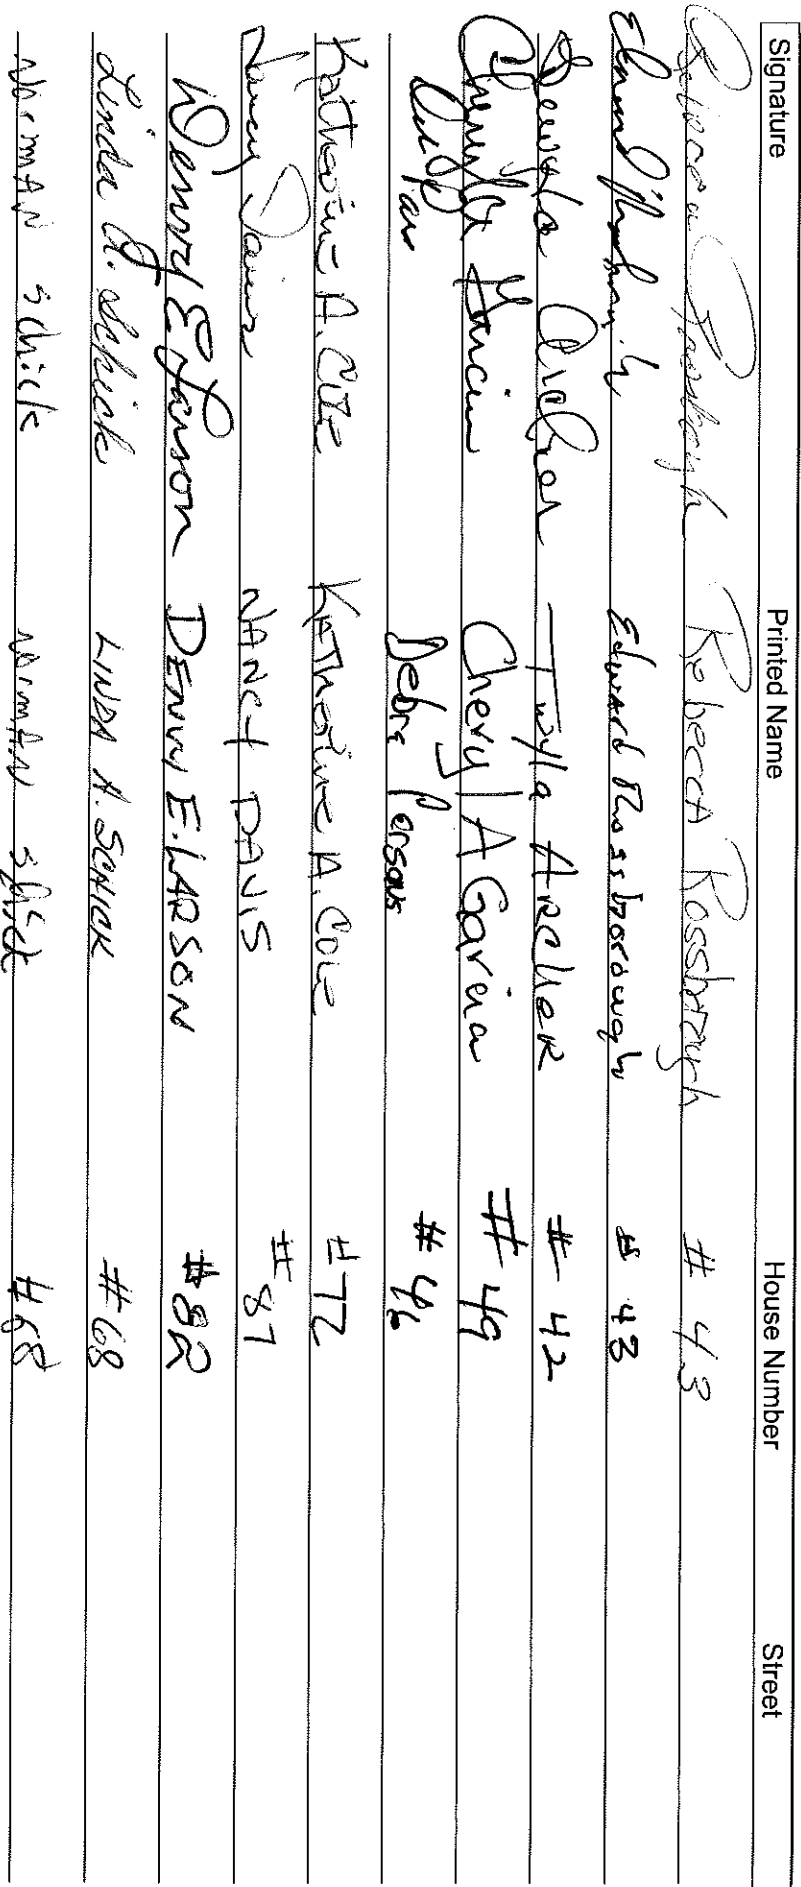 Signature Printed Name House Number Street
Rebecca Rossborough Rebecca Rossborough # 43
Edward Rossborough # 43
Twyla Archer Twyla Archer # 42
Cheryl A Garcia Cheryl A Garcia # 49
Debra Persons # 46
Katharine A. Cole Katharine A. Cole # 72
Nancy Davis NANCY DAVIS # 87
Denny E Larson DENNY E. LARSON # 82
Linda A. Schick LINDA A. SCHICK # 68
Norman Schick Norman Schick # 68